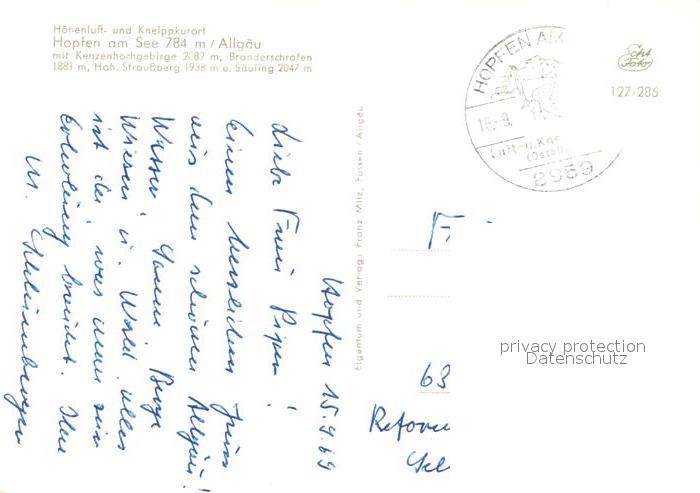 Höhenluft- und Kneippkurort
Hopfen am See 784 m / Allgäu
mit Kenzenhochgebirge 2082 m, Branderschrofen
1881 m, Hoh. Straußberg 1938 m u. Säuling 2047 m
HOPFEN AM
16.-9.
Luft- u. Kne
(Ostall
8959
Echt
Foto
127/285
Eigentum und Verlag: Franz Milz, Füssen / Allgäu
Hopfen 15.9.69
Liebe Frau !
Einen herzlichen Gruss
aus dem schönen Allgäu!
Wasser, Sonne, Berge
Wiesen u. Wald, alles
ist da, was man zur
Erholung braucht. Ihre
M.
F
63
privacy protection
Datenschutz